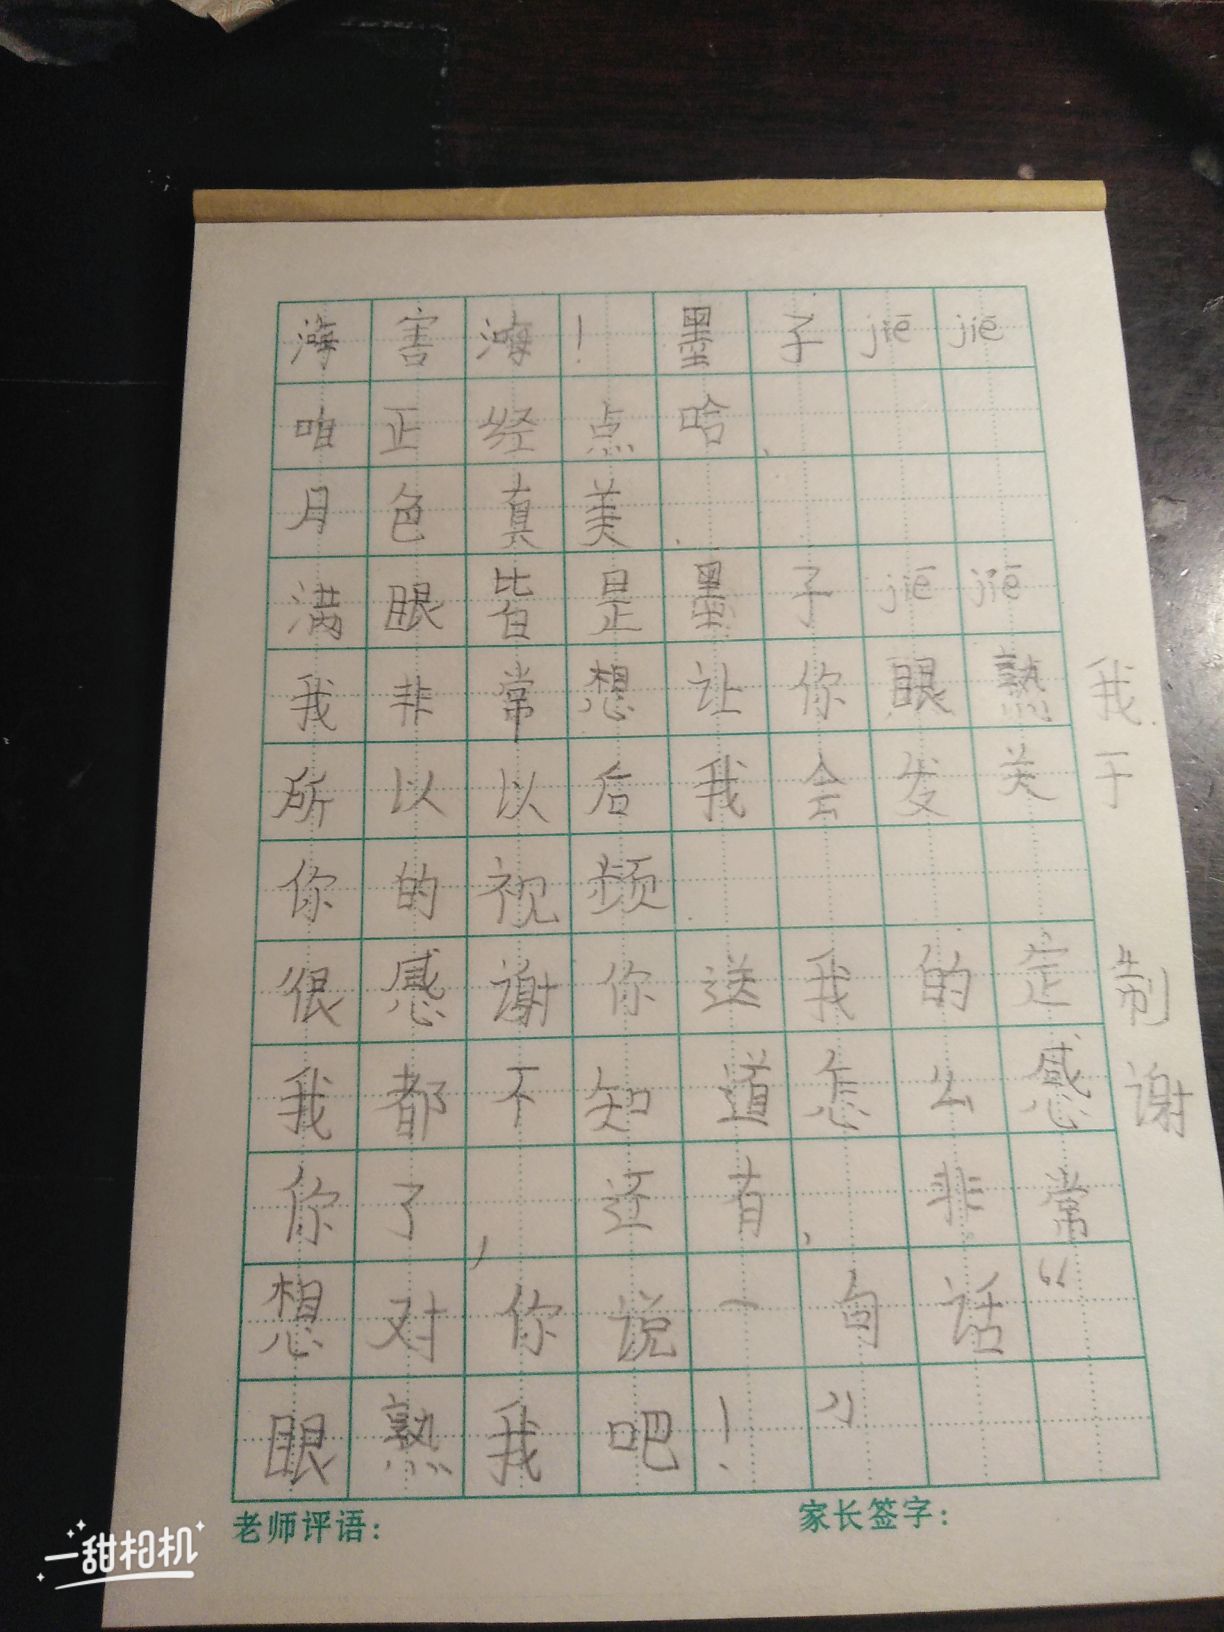 海害海！墨子jiē jiē
咱正经点哈，
月色真美，
满眼皆是墨子jiē jiē
我非常想让你眼熟我.
所以以后我会发关于
你的视频
很感谢你送我的定制
我都不知道怎么感谢
你了，还有，非常
想对你说一句话“
眼熟我吧！”
老师评语：
家长签字：
一甜相机